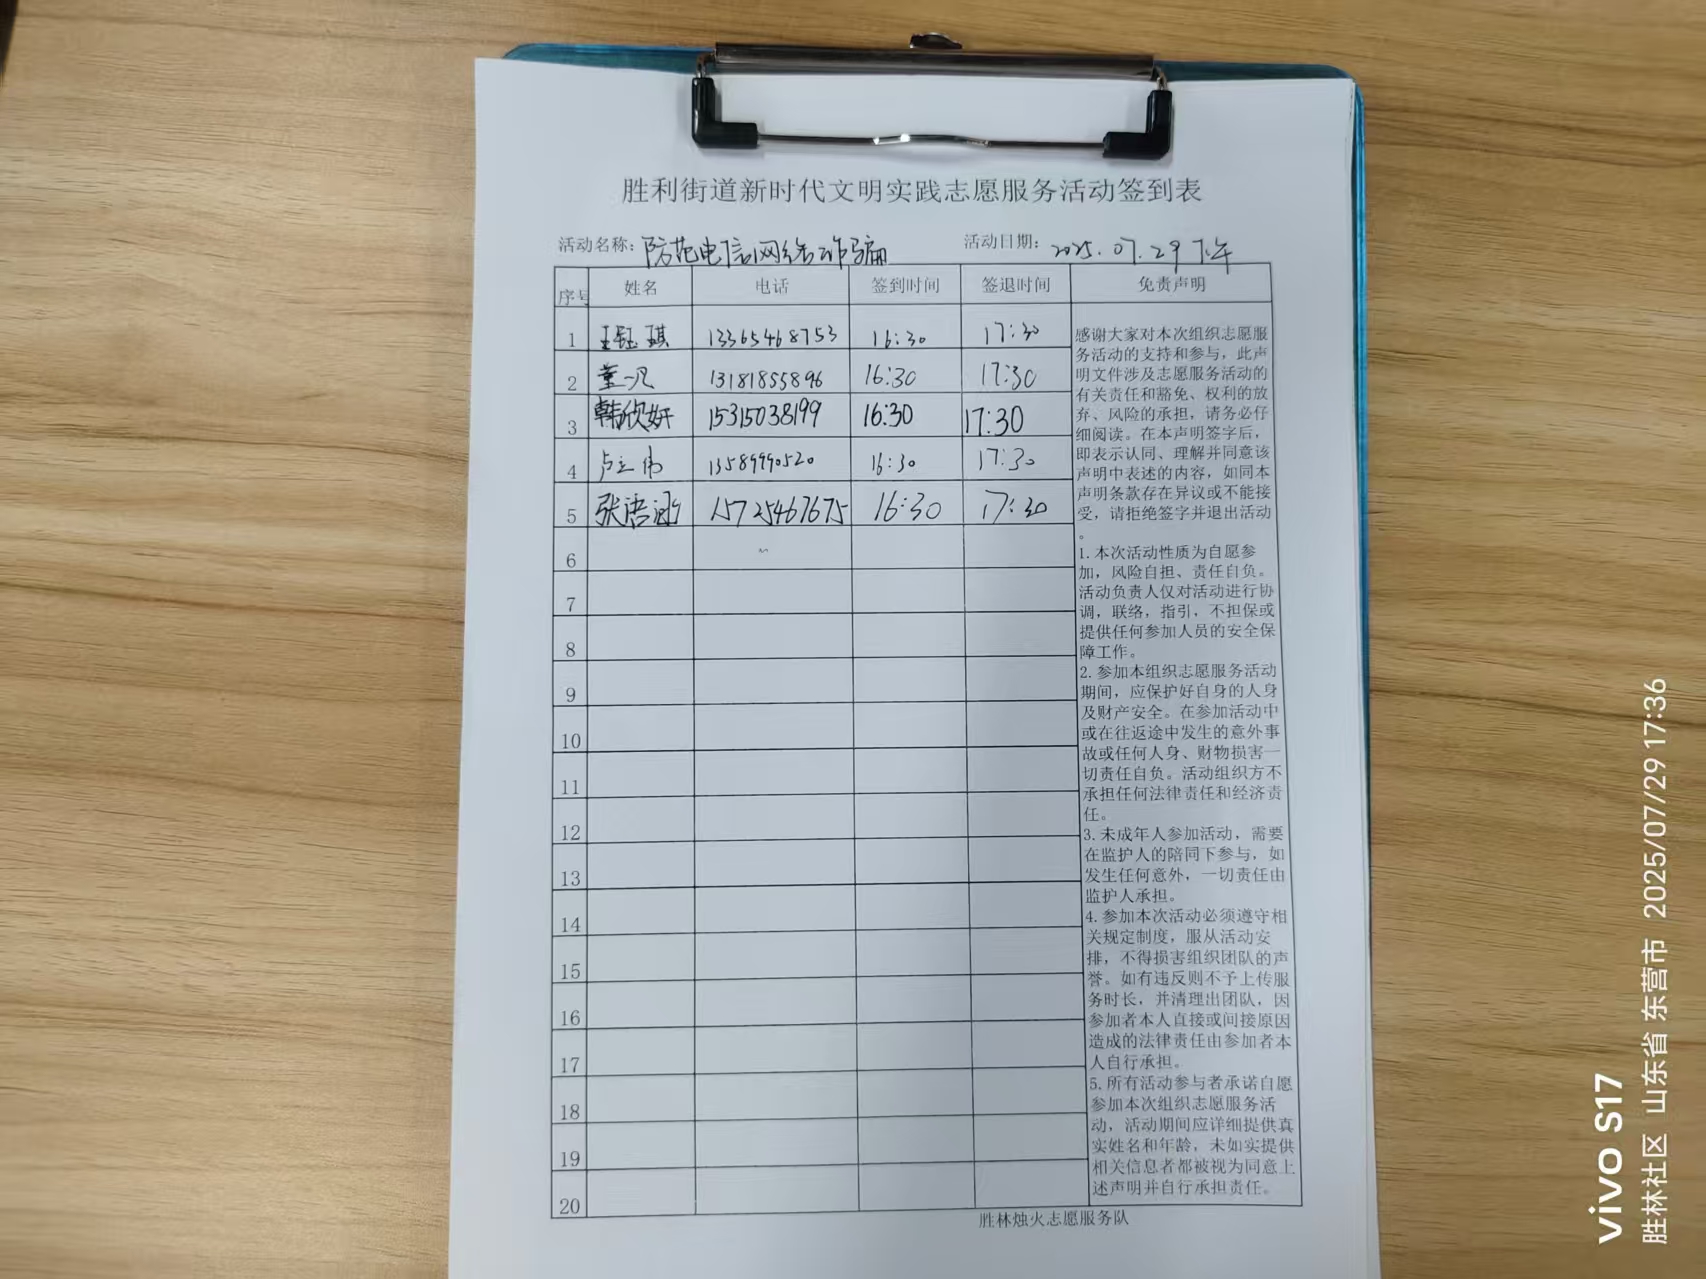 胜利街道新时代文明实践志愿服务活动签到表
活动名称：防范电信网络诈骗 活动日期：2025.07.29下午
序号 姓名 电话 签到时间 签退时间 免责声明
1 王钰琪 13365468753 16:30 17:30
2 董一凡 13181855896 16:30 17:30
3 韩欣妍 15315038199 16:30 17:30
4 卢立伟 13589990520 16:30 17:30
5 张语涵 15725467675 16:30 17:30
6
7
8
9
10
11
12
13
14
15
16
17
18
19
20
感谢大家对本次组织志愿服
务活动的支持和参与，此声
明文件涉及志愿服务活动的
有关责任和豁免、权利的放
弃、风险的承担，请务必仔
细阅读。在本声明签字后，
即表示认同、理解并同意该
声明中表述的内容，如同本
声明条款存在异议或不能接
受，请拒绝签字并退出活动
。
1.本次活动性质为自愿参
加，风险自担、责任自负。
活动负责人仅对活动进行协
调，联络，指引，不担保或
提供任何参加人员的安全保
障工作。
2.参加本组织志愿服务活动
期间，应保护好自身的人身
及财产安全。在参加活动中
或在往返途中发生的意外事
故或任何人身、财物损害一
切责任自负。活动组织方不
承担任何法律责任和经济责
任。
3.未成年人参加活动，需要
在监护人的陪同下参与，如
发生任何意外，一切责任由
监护人承担。
4.参加本次活动必须遵守相
关规定制度，服从活动安
排，不得损害组织团队的声
誉。如有违反则不予上传服
务时长，并清理出团队，因
参加者本人直接或间接原因
造成的法律责任由参加者本
人自行承担。
5.所有活动参与者承诺自愿
参加本次组织志愿服务活
动，活动期间应详细提供真
实姓名和年龄，未如实提供
相关信息者都被视为同意上
述声明并自行承担责任。
胜林烛火志愿服务队
vivo S17
胜林社区 山东省 东营市 2025/07/29 17:36